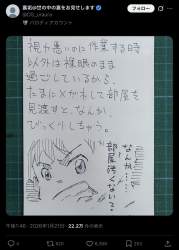 裏若@世の中の裏をお見せします
パロディアカウント
視力悪いのに作業する時
以外は裸眼のまま
過ごしているから、
たまにメガネして部屋を
見渡すと、なんか、
びっくりしちゃう。
なんか…
部屋汚くない?
午後1:40 · 2026年1月21日 · 22.2万 件の表示